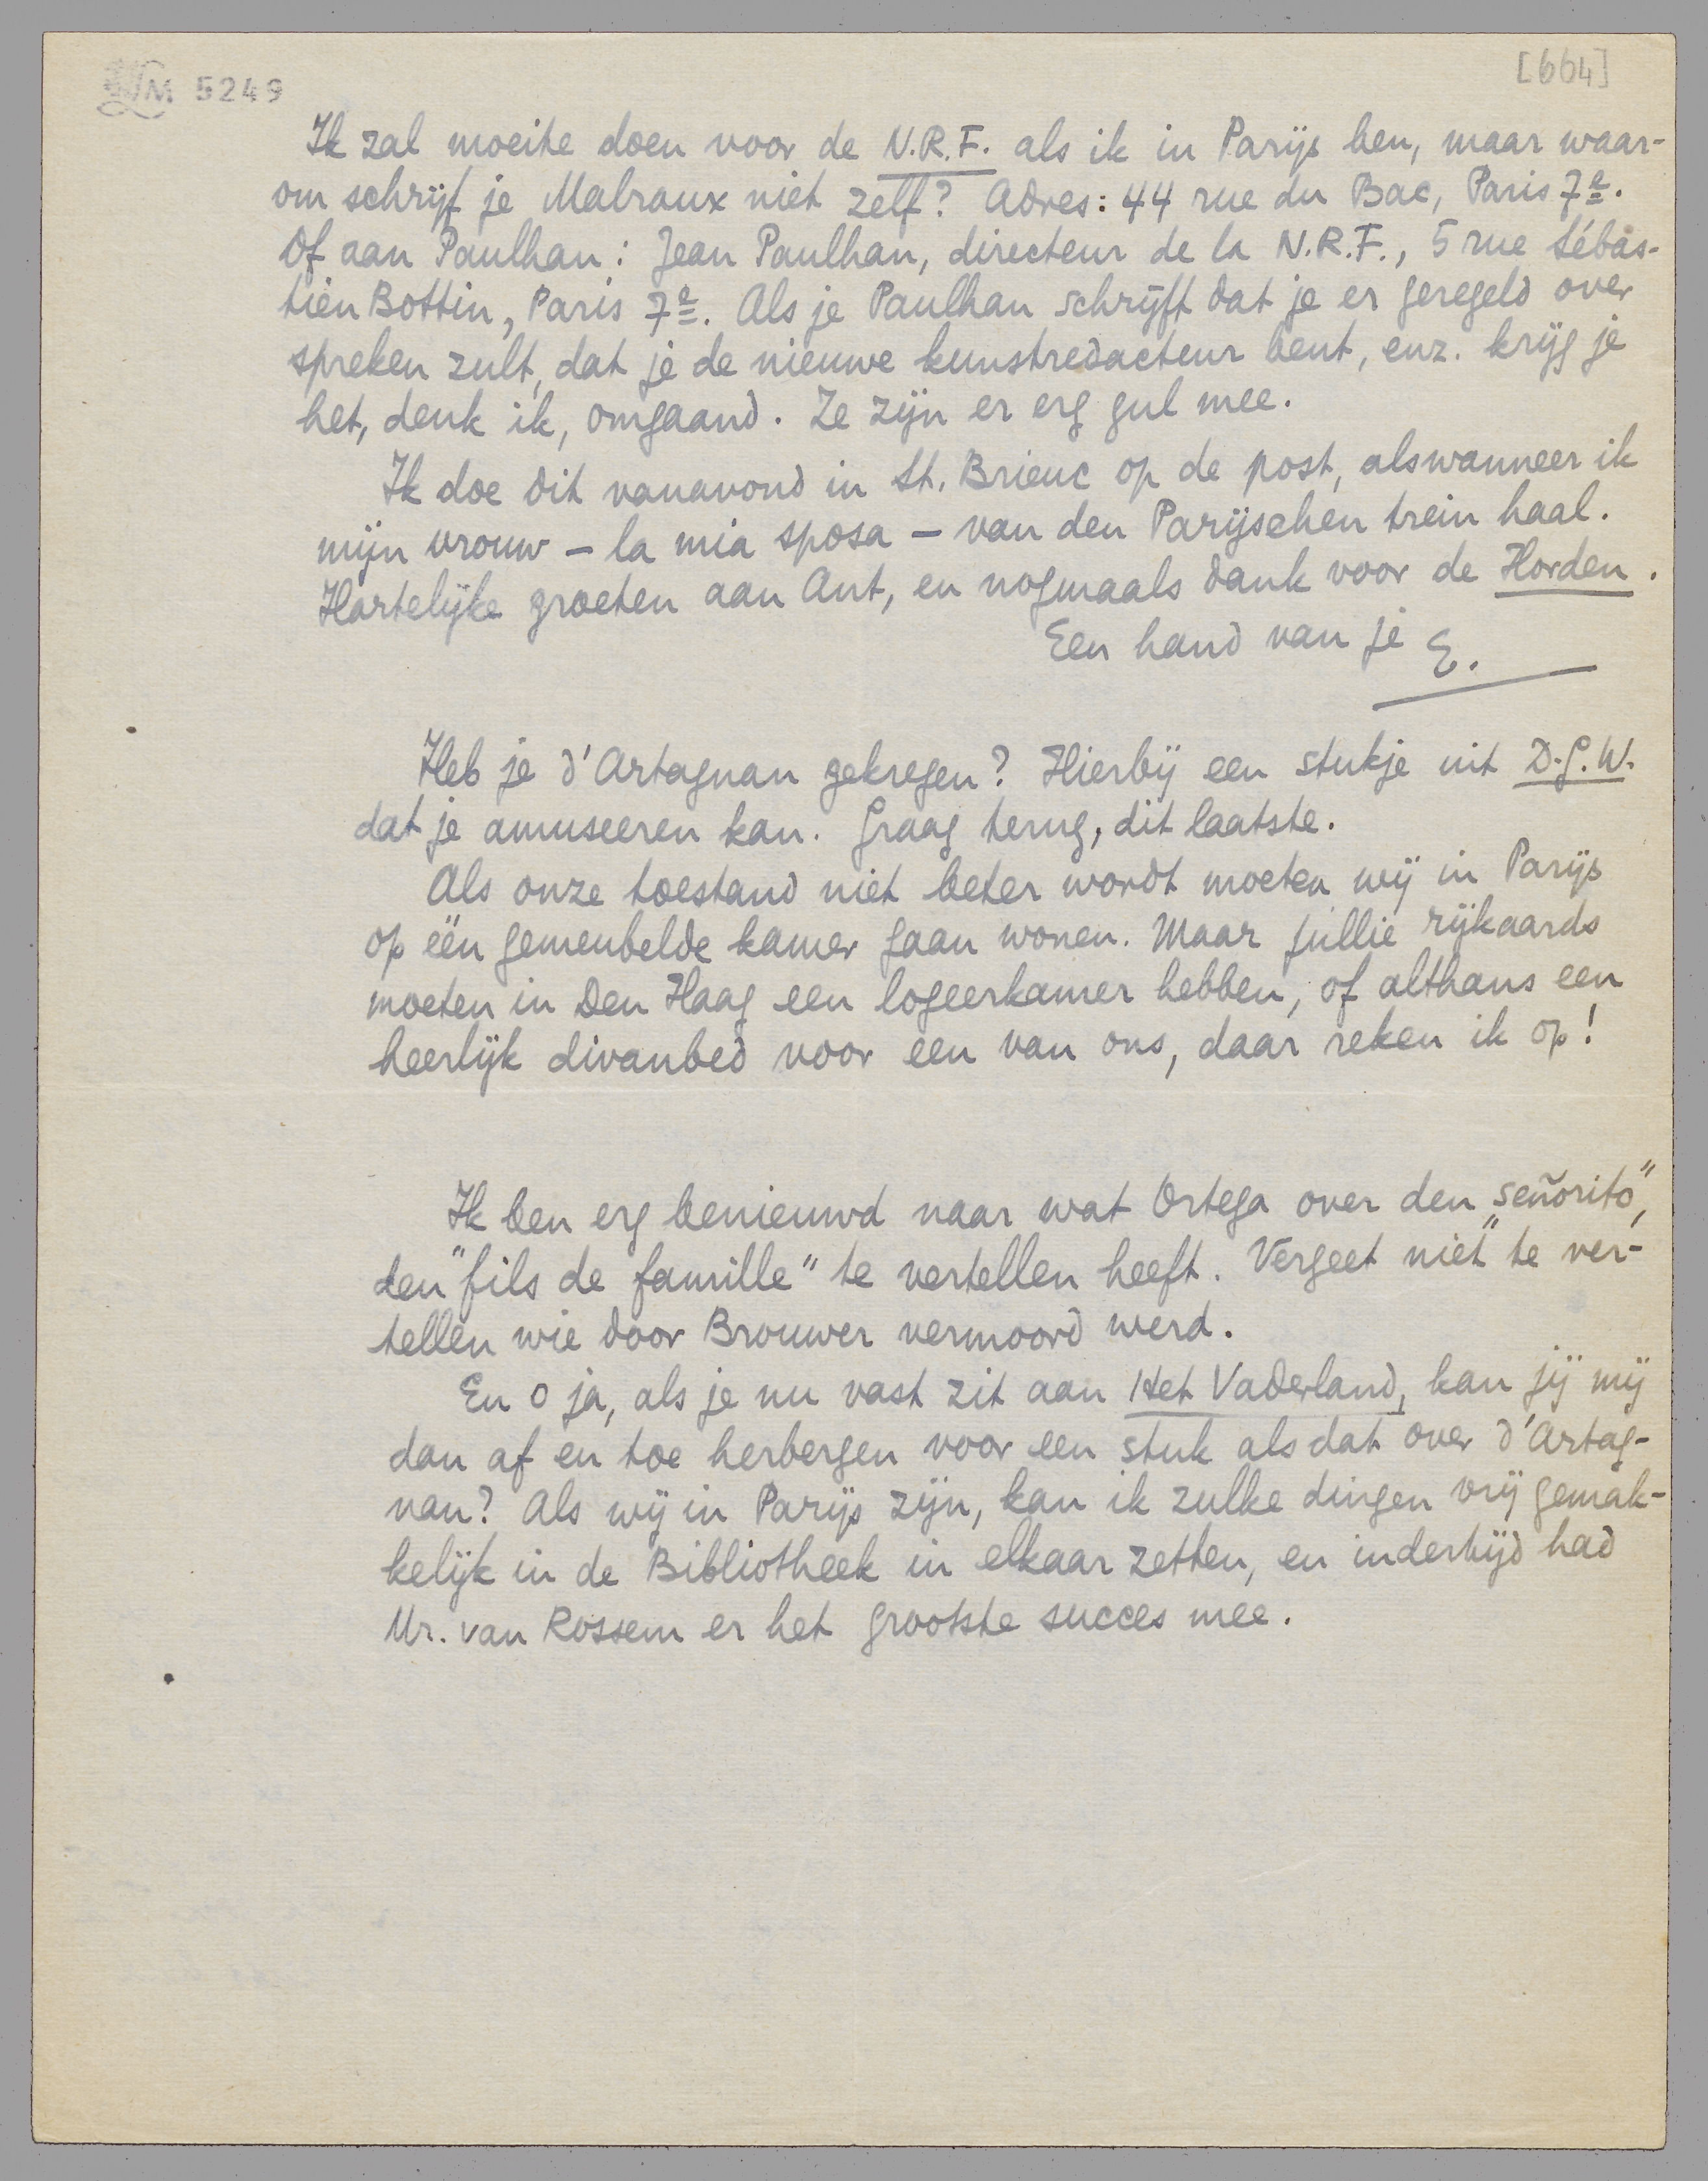 LM 5249
[664]
Ik zal moeite doen voor de N.R.F. als ik in Parijs ben, maar waar-
om schrijf je Malraux niet zelf? Adres: 44 rue du Bac, Paris 7e.
Of aan Paulhan: Jean Paulhan, directeur de la N.R.F., 5 rue Sébas-
tien Bottin, Paris 7e. Als je Paulhan schrijft dat je er geregeld over
spreken zult, dat je de nieuwe kunstredacteur bent, enz. krijg je
het, denk ik, omgaand. Ze zijn er erg gul mee.
Ik doe dit vanavond in St. Brieuc op de post, alswanneer ik
mijn vrouw – la mia sposa – van den Parijschen trein haal.
Hartelijke groeten aan Ant, en nogmaals dank voor de Horden.
Een hand van je E.
Heb je d'Artagnan gekregen? Hierbij een stukje uit D.G.W.
dat je amuseeren kan. Graag terug, dit laatste.
Als onze toestand niet beter wordt moeten wij in Parijs
op één gemeubelde kamer gaan wonen. Maar jullie rijkaards
moeten in Den Haag een logeerkamer hebben, of althans een
heerlijk divanbed voor een van ons, daar reken ik op!
Ik ben erg benieuwd naar wat Ortega over den "señorito",
den "fils de famille" te vertellen heeft. Vergeet niet te ver-
tellen wie door Brouwer vermoord werd.
En o ja, als je nu vast zit aan Het Vaderland, kan jij mij
dan af en toe herbergen voor een stuk als dat over d'Artag-
nan? Als wij in Parijs zijn, kan ik zulke dingen vrij gemak-
kelijk in de Bibliotheek in elkaar zetten, en indertijd had
Mr. van Rossem er het grootste succes mee.